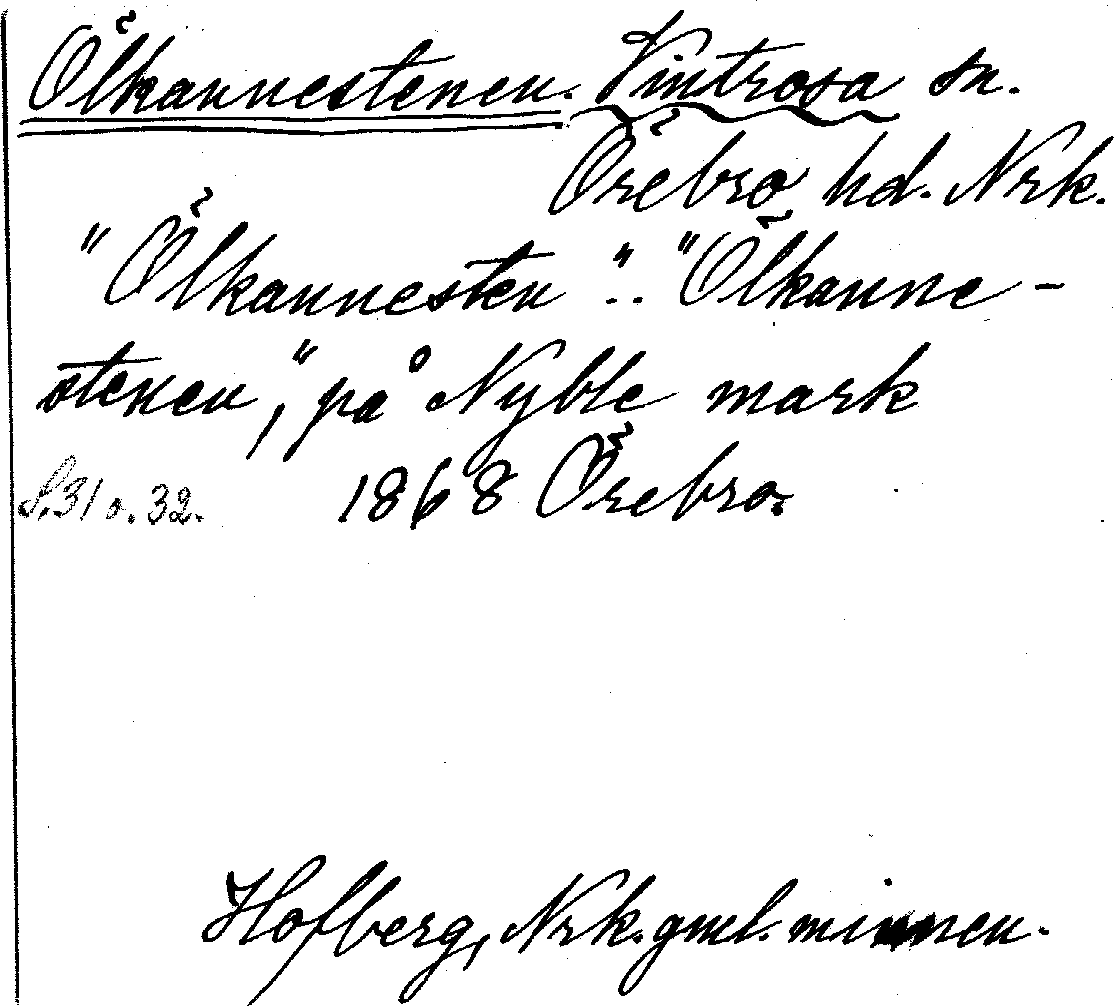 Ölkannestenen. Vintrosa sn.
Örebro hd. Nrk.
"Ölkannesten": "Ölkanne-
stenen", på Nyble mark
S. 31 o. 32. 1868 Örebro.
Hofberg, Nrk. gml. minnen.